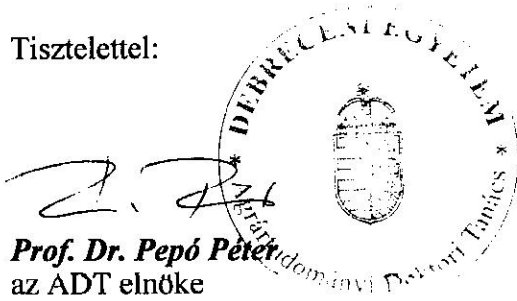 Tisztelettel:
* DEBRECENI EGYETEM *
Agrártudományi Doktori Tanács
Prof. Dr. Pepó Péter
az ADT elnöke